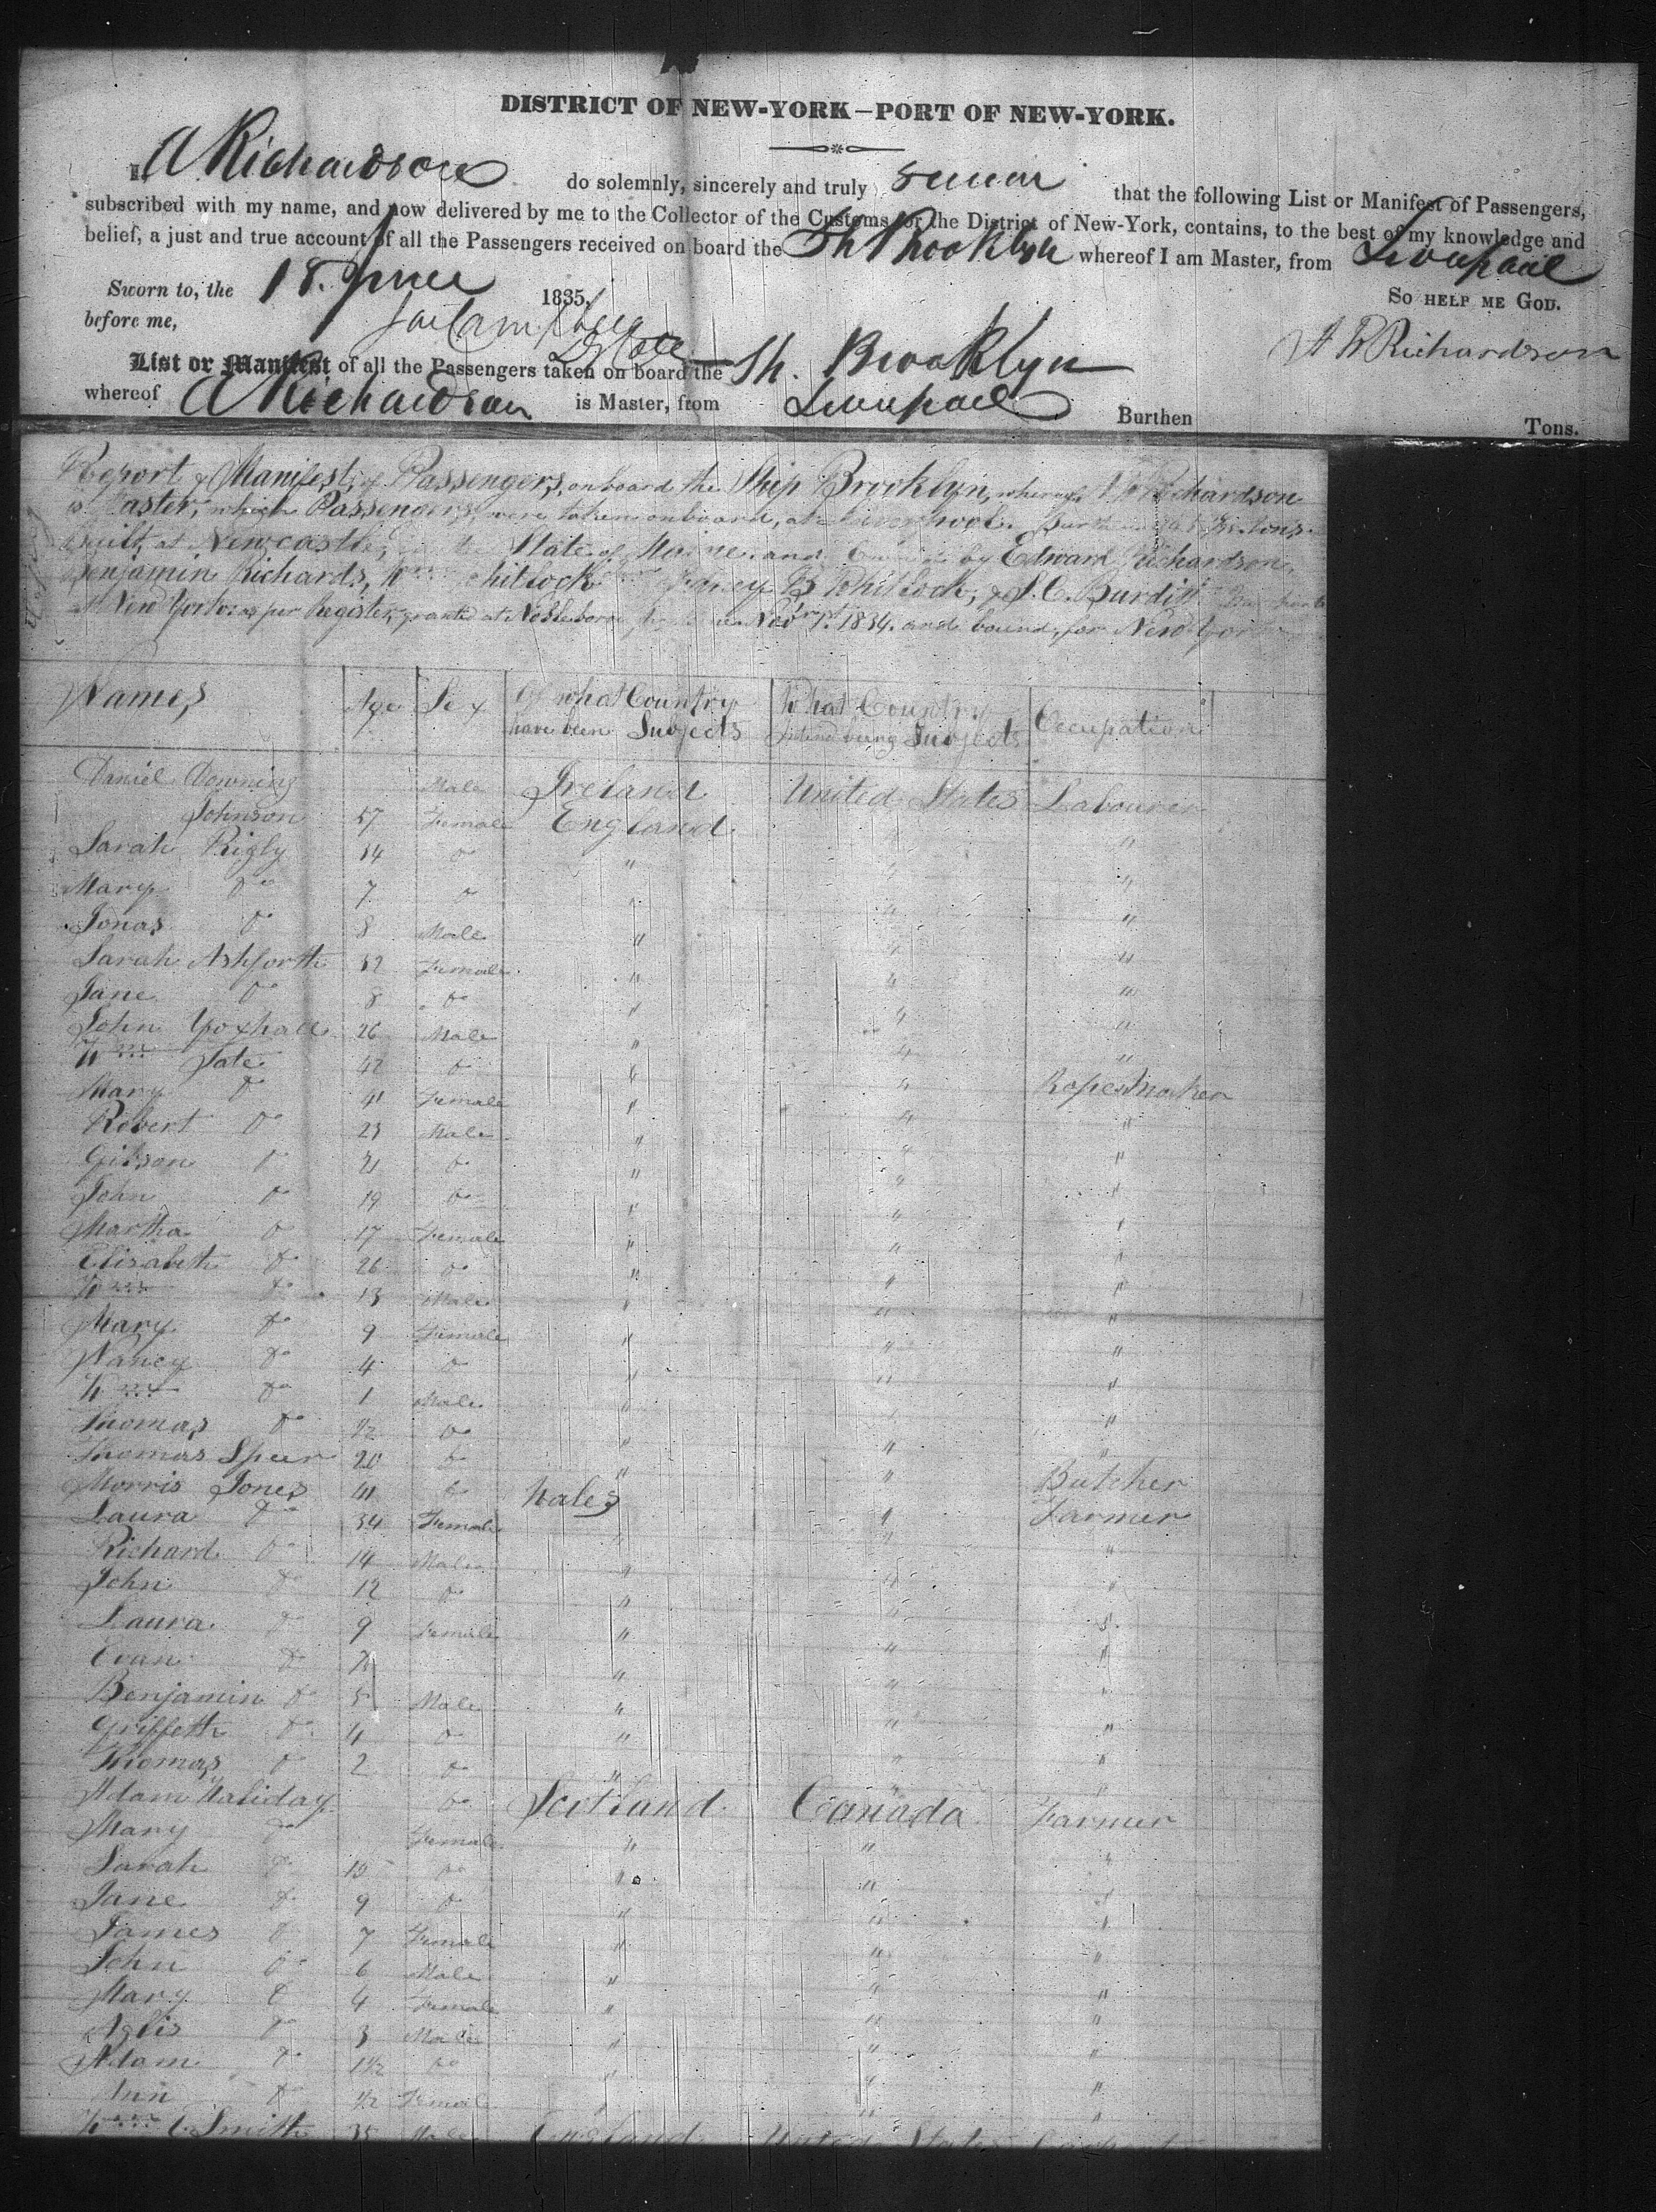 DISTRICT OF NEW-YORK—PORT OF NEW-YORK.
I, A Richardson do solemnly, sincerely and truly swear that the following List or Manifest of Passengers,
subscribed with my name, and now delivered by me to the Collector of the Customs for the District of New-York, contains, to the best of my knowledge and
belief, a just and true account of all the Passengers received on board the Sh Brooklyn whereof I am Master, from Liverpool
Sworn to, the 18. June 1835,
So HELP ME GOD.
before me,
A R Richardson
List or Manifest of all the Passengers taken on board the Sh. Brooklyn
whereof A Richardson is Master, from Liverpool Burthen Tons.
Report & Manifest, of Passengers, onboard the Ship Brooklyn, whereof Richardson
is Master, which Passengers, were taken onboard, at Liverpool. Burthen tons.
Built, at Newcastle, in the State of Maine, and by Edward Richardson,
Benjamin Richards, Whitlock, Whitlock, & S. C. Burditt
at New York as per Register, granted at Nobleboro 1834. and bound, for New York
Names Age Sex Of what Country have been Subjects What Country intend being Subjects Occupation
Daniel Downing Male Ireland United States Labourer
Johnson 57 Female England " "
Sarah Rigly 14 Do " " "
Mary Do 7 Do " " "
Jonas Do 8 Male " " "
Sarah Ashforth 32 Female " " "
Jane Do 8 Do " " "
John Yoxhall 26 Male " " "
Wm Tate 42 Do " " Ropes Maker
Mary Do 41 Female " " "
Robert Do 23 Male " " "
Gibson Do 21 Do " " "
John Do 19 Do " " "
Martha Do 17 Female " " "
Elizabeth Do 26 Do " " "
Wm Do 13 Male " " "
Mary Do 9 Female " " "
Nancy Do 4 Do " " "
Wm Do 1 Male " " "
Thomas Do 1/2 Do " " "
Thomas Speer 20 Do " " Butcher
Morris Jones 41 Do Wales " Farmer
Laura Do 34 Female " " "
Richard Do 14 Male " " "
John Do 12 Do " " "
Laura Do 9 Female " " "
Evan Do " " "
Benjamin Do 5 Male " " "
Griffeth Do 4 Do " " "
Thomas Do 2 Do " " "
Adam Haliday Do Scotland Canada Farmer
Mary Do Female " " "
Sarah Do 10 Do " " "
Jane Do 9 Do " " "
James Do 7 Female " " "
John Do 6 Male " " "
Mary Do 4 Female " " "
Do 3 Male " " "
Adam Do 1 1/2 Do " " "
Ann Do 1/2 Female " " "
Wm C. Smith 35 Male England United States